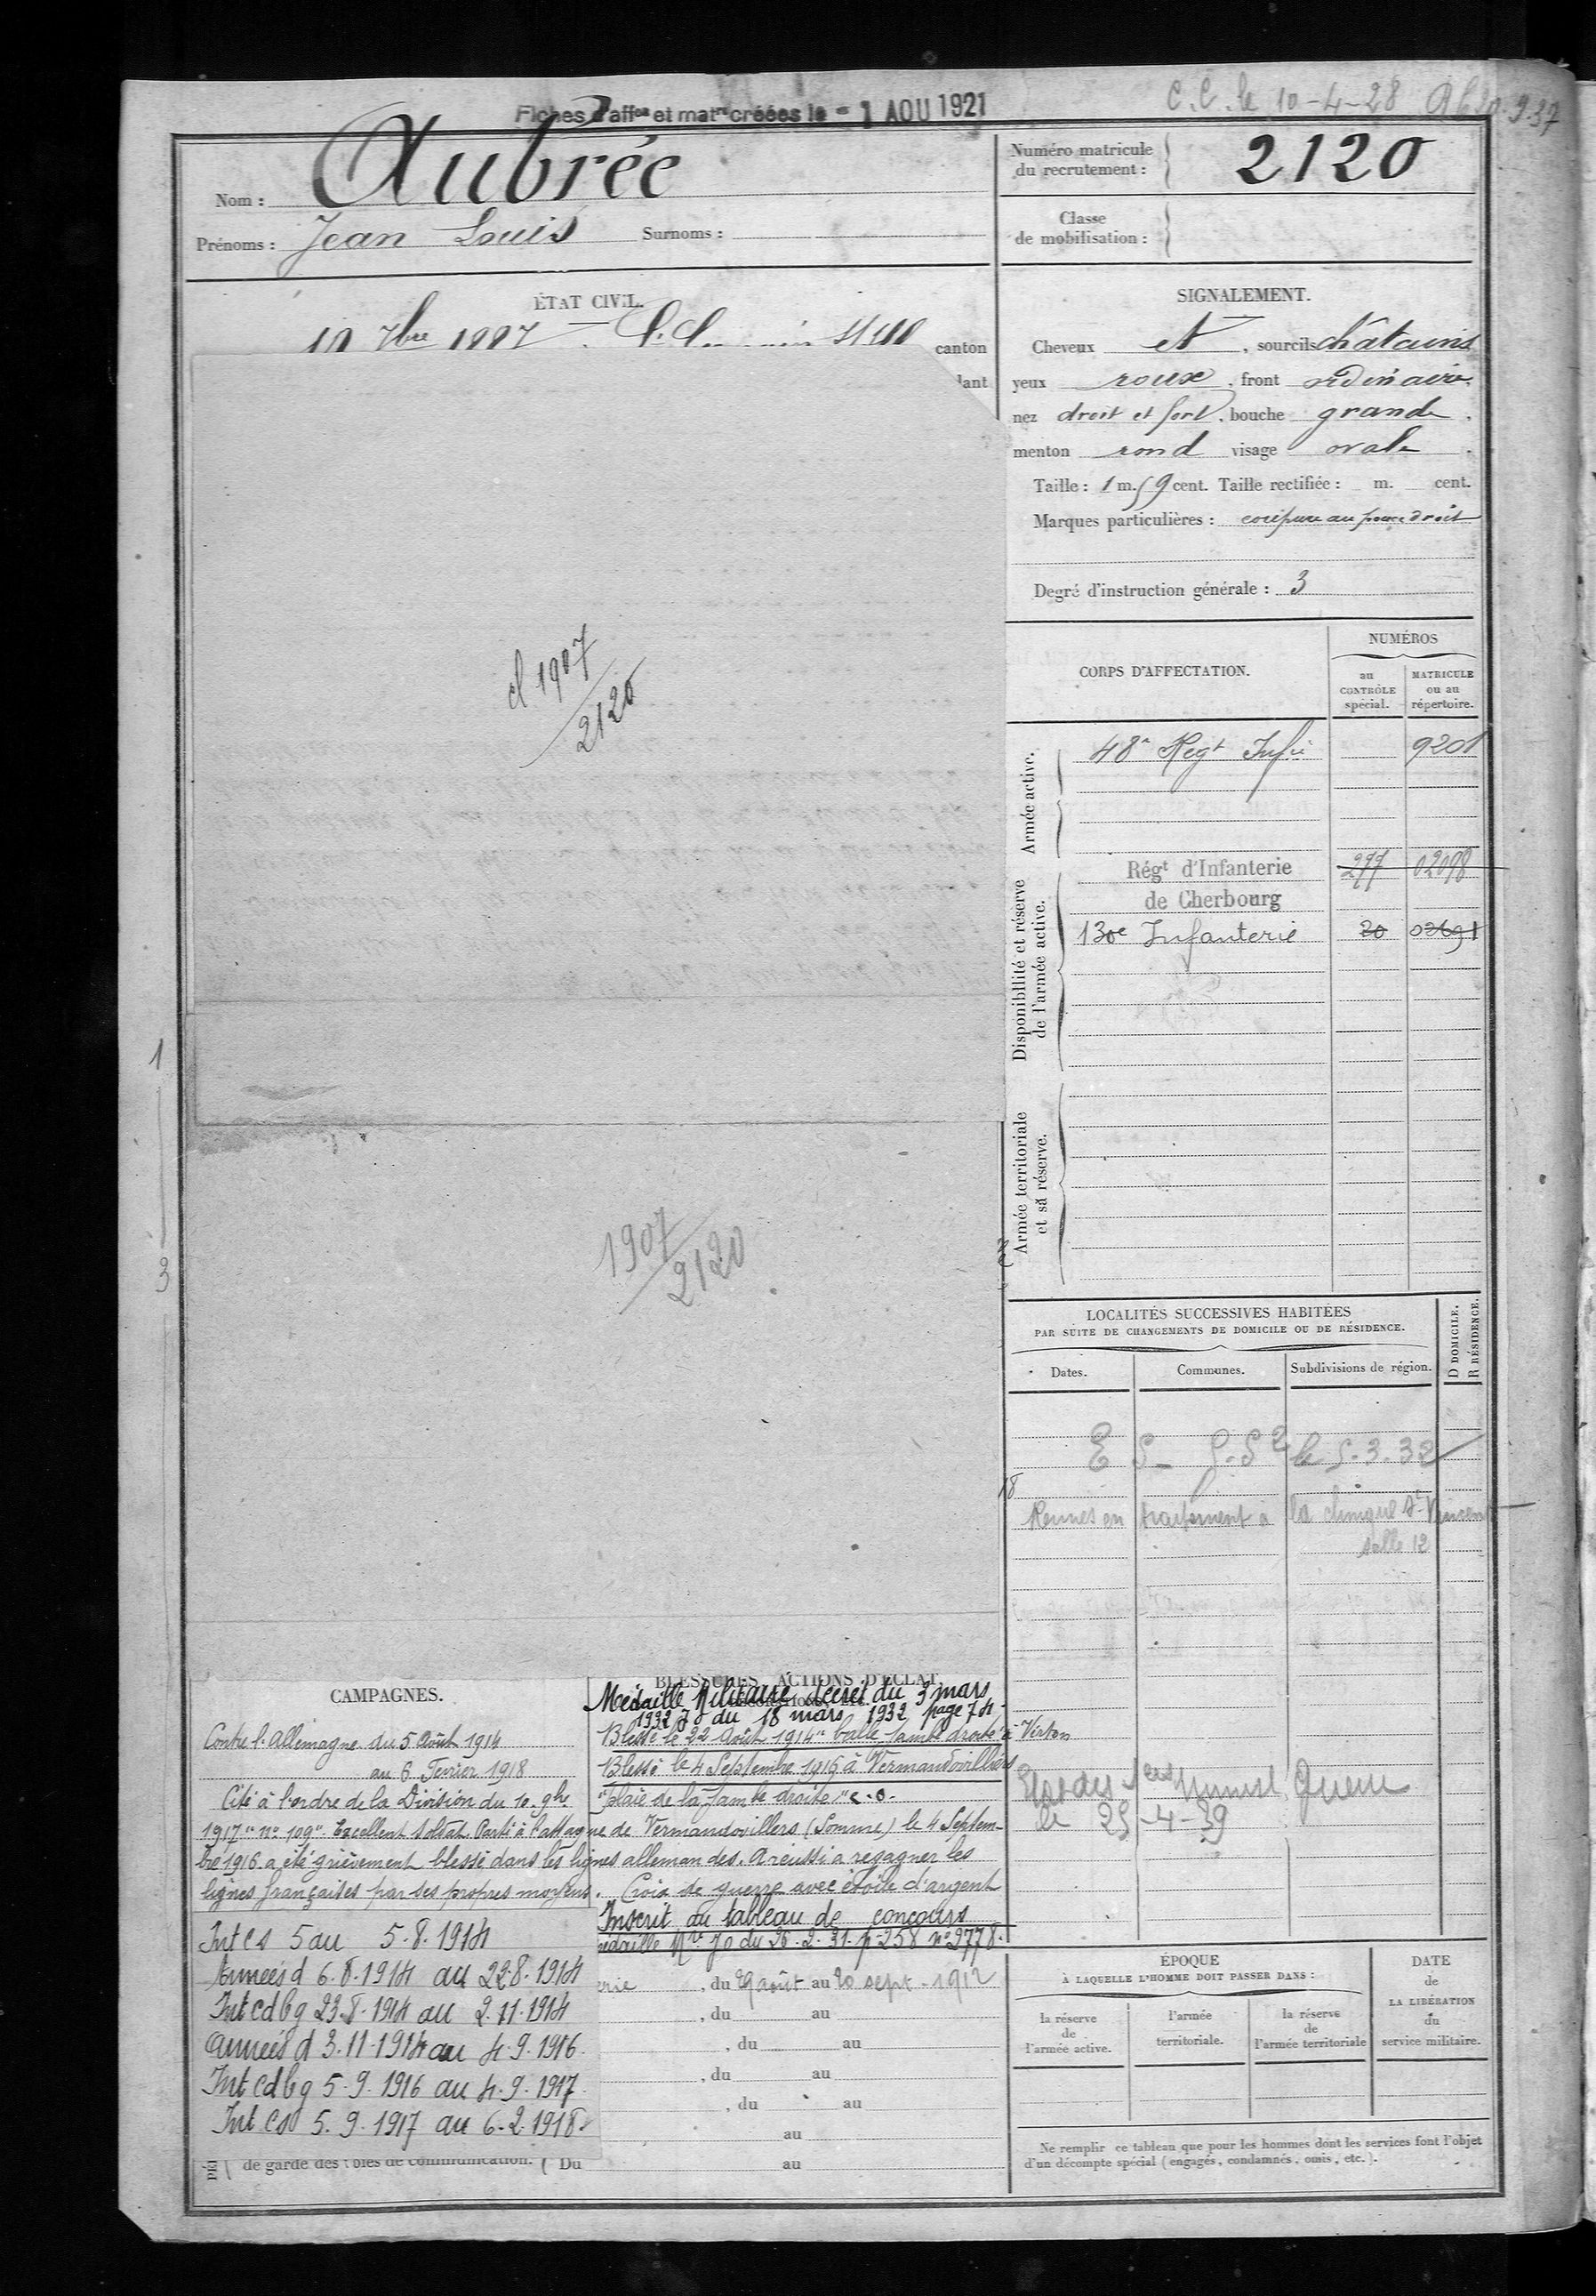 Fiches d'aff<sup>on</sup> et mat<sup>re</sup> créées le - 1 AOU 1921
C.C. le 10-4-28
Nom : Aubrée
Prénoms : Jean Louis Surnoms :
Numéro matricule du recrutement : 2120
Classe de mobilisation :
ÉTAT CIVIL.
canton
SIGNALEMENT.
Cheveux et, sourcils châtains
yeux roux, front ordinaire,
nez droit et fort, bouche grande,
menton rond visage ovale.
Taille : 1 m. 59 cent. Taille rectifiée : m. cent.
Marques particulières : coupure au pouce droit
Degré d'instruction générale : 3
cl 1907
2120
CORPS D'AFFECTATION.
NUMÉROS
au CONTRÔLE spécial.
MATRICULE ou au répertoire.
Armée active.
48e Regt Infie 9201
Disponibilité et réserve de l'armée active.
Régt d'Infanterie 277 02098
de Cherbourg
130e Infanterie 20 02691
Armée territoriale et sa réserve.
1
3
1907
2120
LOCALITÉS SUCCESSIVES HABITÉES
PAR SUITE DE CHANGEMENTS DE DOMICILE OU DE RÉSIDENCE.
Dates.
Communes.
Subdivisions de région.
D DOMICILE.
R RÉSIDENCE.
le 5.3.32
Rennes en traitement à la clinique St Vincent
salle 12
le 25-4-39
CAMPAGNES.
Contre l'Allemagne du 5 Août 1914
au 6 Février 1918
BLESSURES, ACTIONS D'ÉCLAT,
Médaille Militaire décret du 3 mars
1932 J.O du 18 mars 1932 page 74
Blessé le 22 Août 1914 "balle jambe droite" à Virton
Blessé le 4 Septembre 1916 à Vermandovillers
"plaie de la jambe droite"
Cité à l'ordre de la Division du 10. 9bre
1917 "no 109" Excellent soldat. Parti à l'attaque de Vermandovillers (Somme) le 4 Septem-
bre 1916 a été grièvement blessé dans les lignes allemandes. A réussi à regagner les
lignes françaises par ses propres moyens. Croix de guerre avec étoile d'argent
Inscrit au tableau de concours
médaille Mre JO du 26.2.31. p 258 no 2778.
Int cs 5 au 5.8.1914
Armées d 6.8.1914 au 22.8.1914
Int cdbg 23.8.1914 au 2.11.1914
Armées d 3.11.1914 au 4.9.1916.
Int cdbg 5.9.1916 au 4.9.1917
Int cs 5.9.1917 au 6.2.1918
, du 29 août au 20 sept - 1912
, du au
, du au
, du au
, du au
au
de garde des voies de communication. ( Du au
ÉPOQUE
À LAQUELLE L'HOMME DOIT PASSER DANS :
la réserve de l'armée active.
l'armée territoriale.
la réserve de l'armée territoriale
DATE de LA LIBÉRATION du service militaire.
Ne remplir ce tableau que pour les hommes dont les services font l'objet
d'un décompte spécial (engagés, condamnés, omis, etc.).